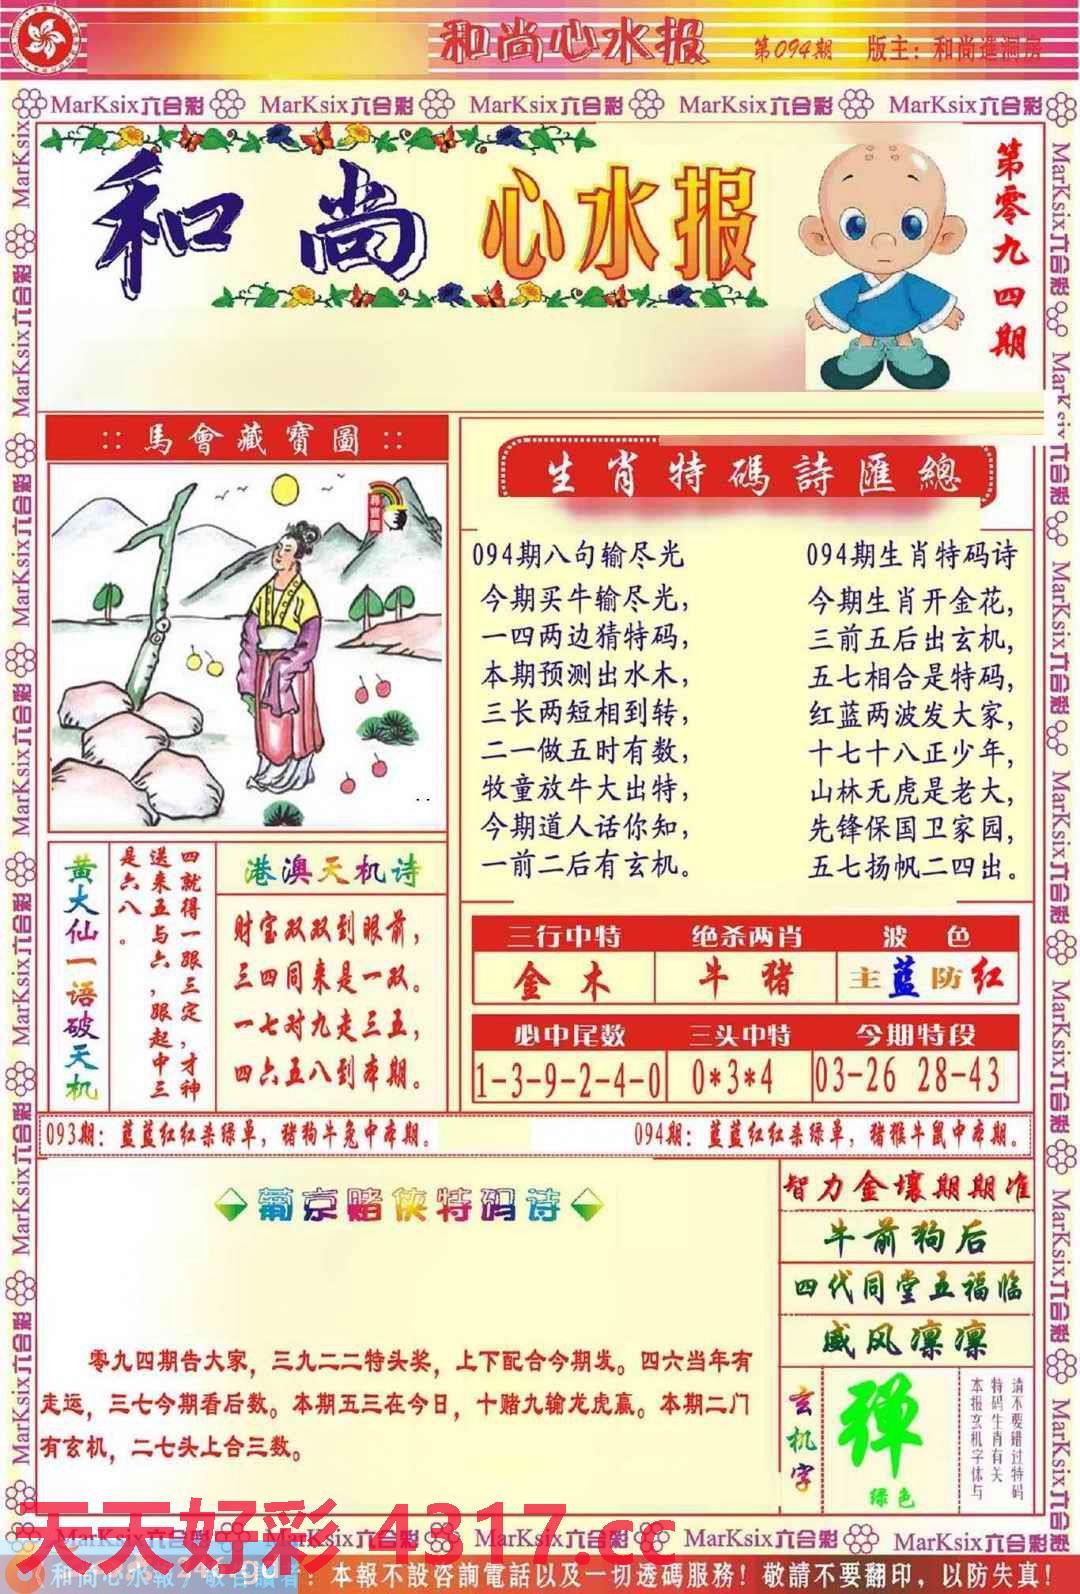 和尚心水报
第094期
版主：和尚進洞房
MarKsix六合彩 MarKsix六合彩 MarKsix六合彩 MarKsix六合彩 MarKsix六合彩
和尚心水报
第零九四期
::馬會藏寶圖::
尋寶圖
生肖特碼詩匯總
094期八句输尽光
今期买牛输尽光，
一四两边猜特码，
本期预测出水木，
三长两短相到转，
二一做五时有数，
牧童放牛大出特，
今期道人话你知，
一前二后有玄机。
094期生肖特码诗
今期生肖开金花，
三前五后出玄机，
五七相合是特码，
红蓝两波发大家，
十七十八正少年，
山林无虎是老大，
先锋保国卫家园，
五七扬帆二四出。
黄大仙一语破天机
四就得一跟三定，才神
送来五与六，跟起中三
是六八。
港澳天机诗
财宝双双到眼前，
三四同来是一双。
一七对九走三五，
四六五八到本期。
三行中特 绝杀两肖 波色
金木 牛猪 主蓝防红
必中尾数 三头中特 今期特段
1-3-9-2-4-0 0*3*4 03-26 28-43
093期：蓝蓝红红杀绿单，猪狗牛兔中本期。
094期：蓝蓝红红杀绿单，猪猴牛鼠中本期。
葡京赌侠特码诗
零九四期告大家，三九二二特头奖，上下配合今期发。四六当年有
走运，三七今期看后数。本期五三在今日，十赌九输龙虎赢。本期二门
有玄机，二七头上合三数。
智力金壤期期准
牛前狗后
四代同堂五福临
威风凛凛
玄机字
弹
绿色
请不要错过特码
特码生肖有关
本报玄机字体与
MarKsix六合彩 MarKsix六合彩 MarKsix六合彩 MarKsix六合彩 MarKsix六合彩
天天好彩 4317.cc
和尚心水報
敬告讀者：本報不設咨詢電話以及一切透碼服務！敬請不要翻印，以防失真！